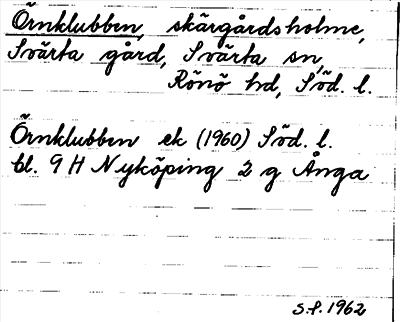 Örnklubben, skärgårdsholme,
Svärta gård, Svärta sn,
Rönö hd, Söd. l.
Örnklubben ek (1960) Söd. l.
bl. 9 H Nyköping 2 g Ånga
S.f. 1962